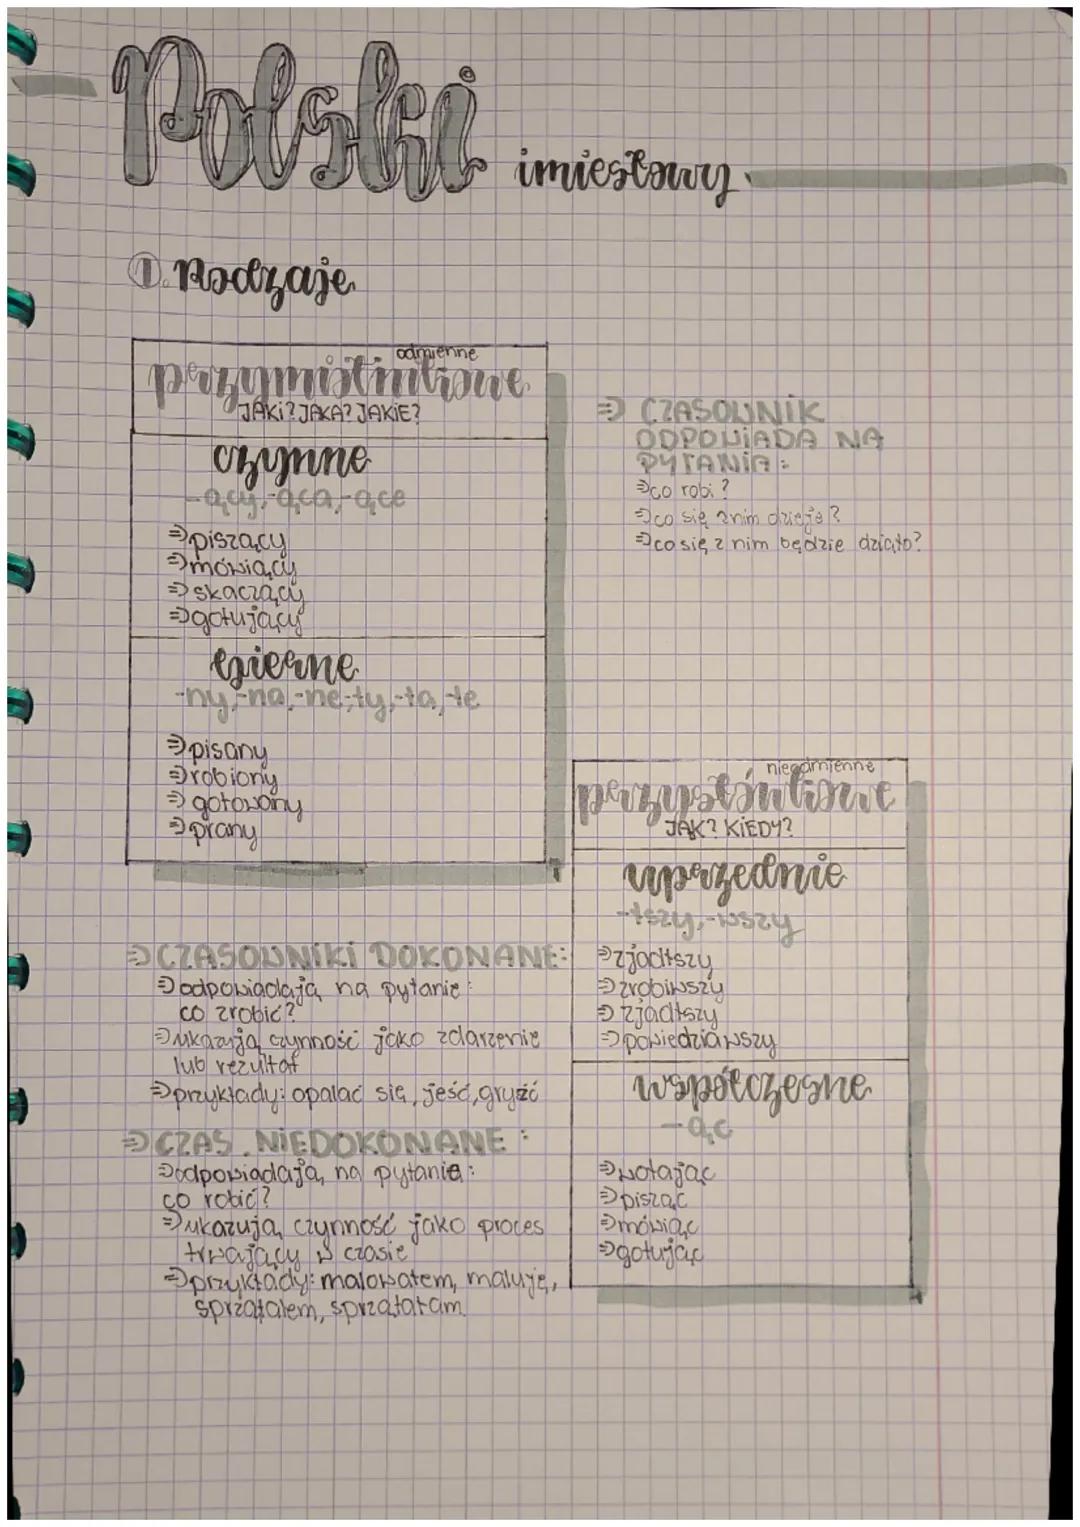 Polski
imiesłowy
1. Rodzaje
odmienne
przymiotnikowe
JAKi? JAKA? JAKiE?
czynne
-ący, -ąca, -ące
⇒piszący
⇒mówiący
⇒skaczący
⇒gotujący
bierne
-ny, -na, -ne, -ty, -ta, -te
⇒pisany
⇒robiony
⇒gotowany
⇒prany
⇒ CZASOWNIK
ODPOWiADA NA
PYTANiA:
⇒co robi?
⇒co się z nim dzieje?
⇒co się z nim będzie działo?
⇒CZASOWNiKi DOKONANE:
⇒odpowiadają na pytanie:
co zrobić?
⇒ukazują czynność jako zdarzenie
lub rezultat
⇒przykłady: opalać się, jeść, gryźć
⇒CZAS. NiEDOKONANE:
⇒odpowiadają na pytania:
co robić?
⇒ukazują czynność jako proces
trwający w czasie
⇒przykłady: malowałem, maluję,
sprzątałem, sprzątałam.
nieodmienne
przysłówkowe
JAK? KiEDY?
uprzednie
-łszy, -wszy
⇒zjadłszy
⇒zrobiwszy
⇒zjadłszy
⇒powiedziawszy
współczesne
-ąc
⇒wołając
⇒pisząc
⇒mówiąc
⇒gotując